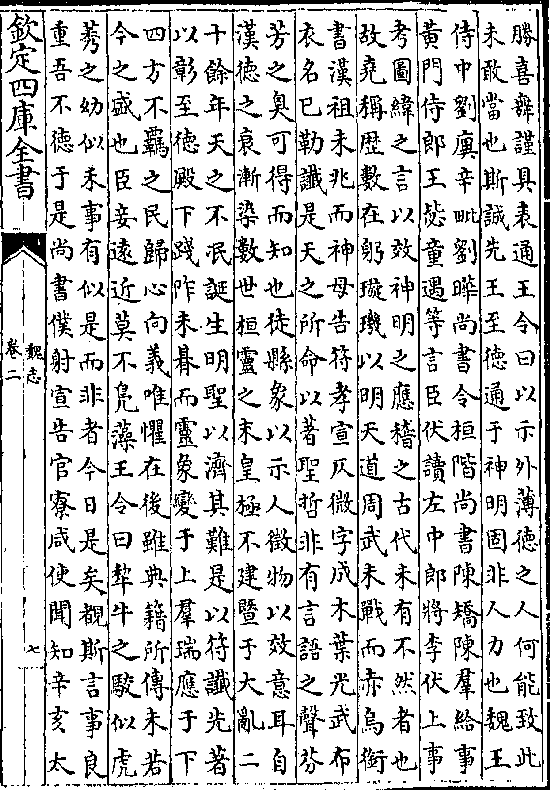 勝喜躍謹具表通王令曰以示外薄德之人何能致此
未敢當也斯誠先王至德通于神明固非人力也魏王
侍中劉廙辛毗劉曄尚書令桓階尚書陳矯陳羣給事
黃門侍郎王毖董遇等言臣伏讀左中郎將李伏上事
考圖緯之言以效神明之應稽之古代未有不然者也
故堯稱歷數在躬璇璣以明天道周武未戰而赤烏銜
書漢祖未兆而神母告符孝宣仄微字成木葉光武布
衣名已勒讖是天之所命以著聖哲非有言語之聲芬
芳之臭可得而知也徒縣象以示人微物以效意耳自
漢德之衰漸染數世桓靈之末皇極不建曁于大亂二
十餘年天之不泯誕生明聖以濟其難是以符讖先著
以彰至德殿下踐阼未朞而靈象變于上羣瑞應于下
四方不羈之民歸心向義唯懼在後雖典籍所傳未若
今之盛也臣妾遠近莫不鳧藻王令曰犂牛之駮似虎
莠之幼似禾事有似是而非者今日是矣覩斯言事良
重吾不德于是尚書僕射宣告官寮咸使聞知辛亥太
欽定四庫全書
魏志
卷二
七